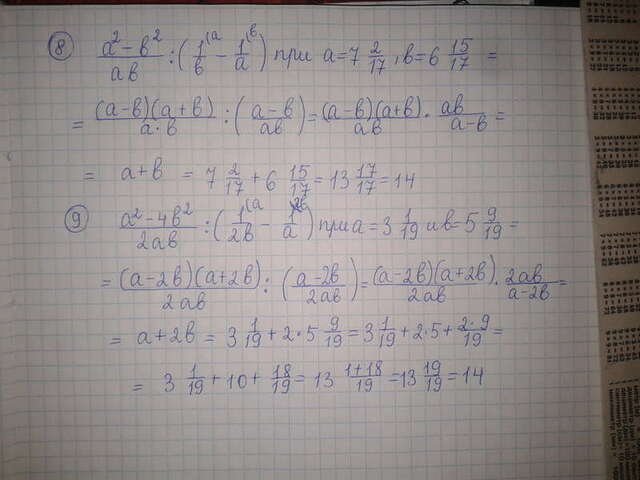 8 (a²-в²)/(aв) : (1/в (a - 1/a (в) при a=7 2/17, в=6 15/17 =
= ((a-в)(a+в))/(a·в) : ((a-в)/(aв)) = ((a-в)(a+в))/(aв) · (aв)/(a-в) =
= a+в = 7 2/17 + 6 15/17 = 13 17/17 = 14
9 (a²-4в²)/(2aв) : (1/(2в) (a - 1/a (2в) при a=3 1/19 и в=5 9/19 =
= ((a-2в)(a+2в))/(2aв) : ((a-2в)/(2aв)) = ((a-2в)(a+2в))/(2aв) · (2aв)/(a-2в) =
= a+2в = 3 1/19 + 2·5 9/19 = 3 1/19 + 2·5 + (2·9)/19 =
= 3 1/19 + 10 + 18/19 = 13 (1+18)/19 = 13 19/19 = 14